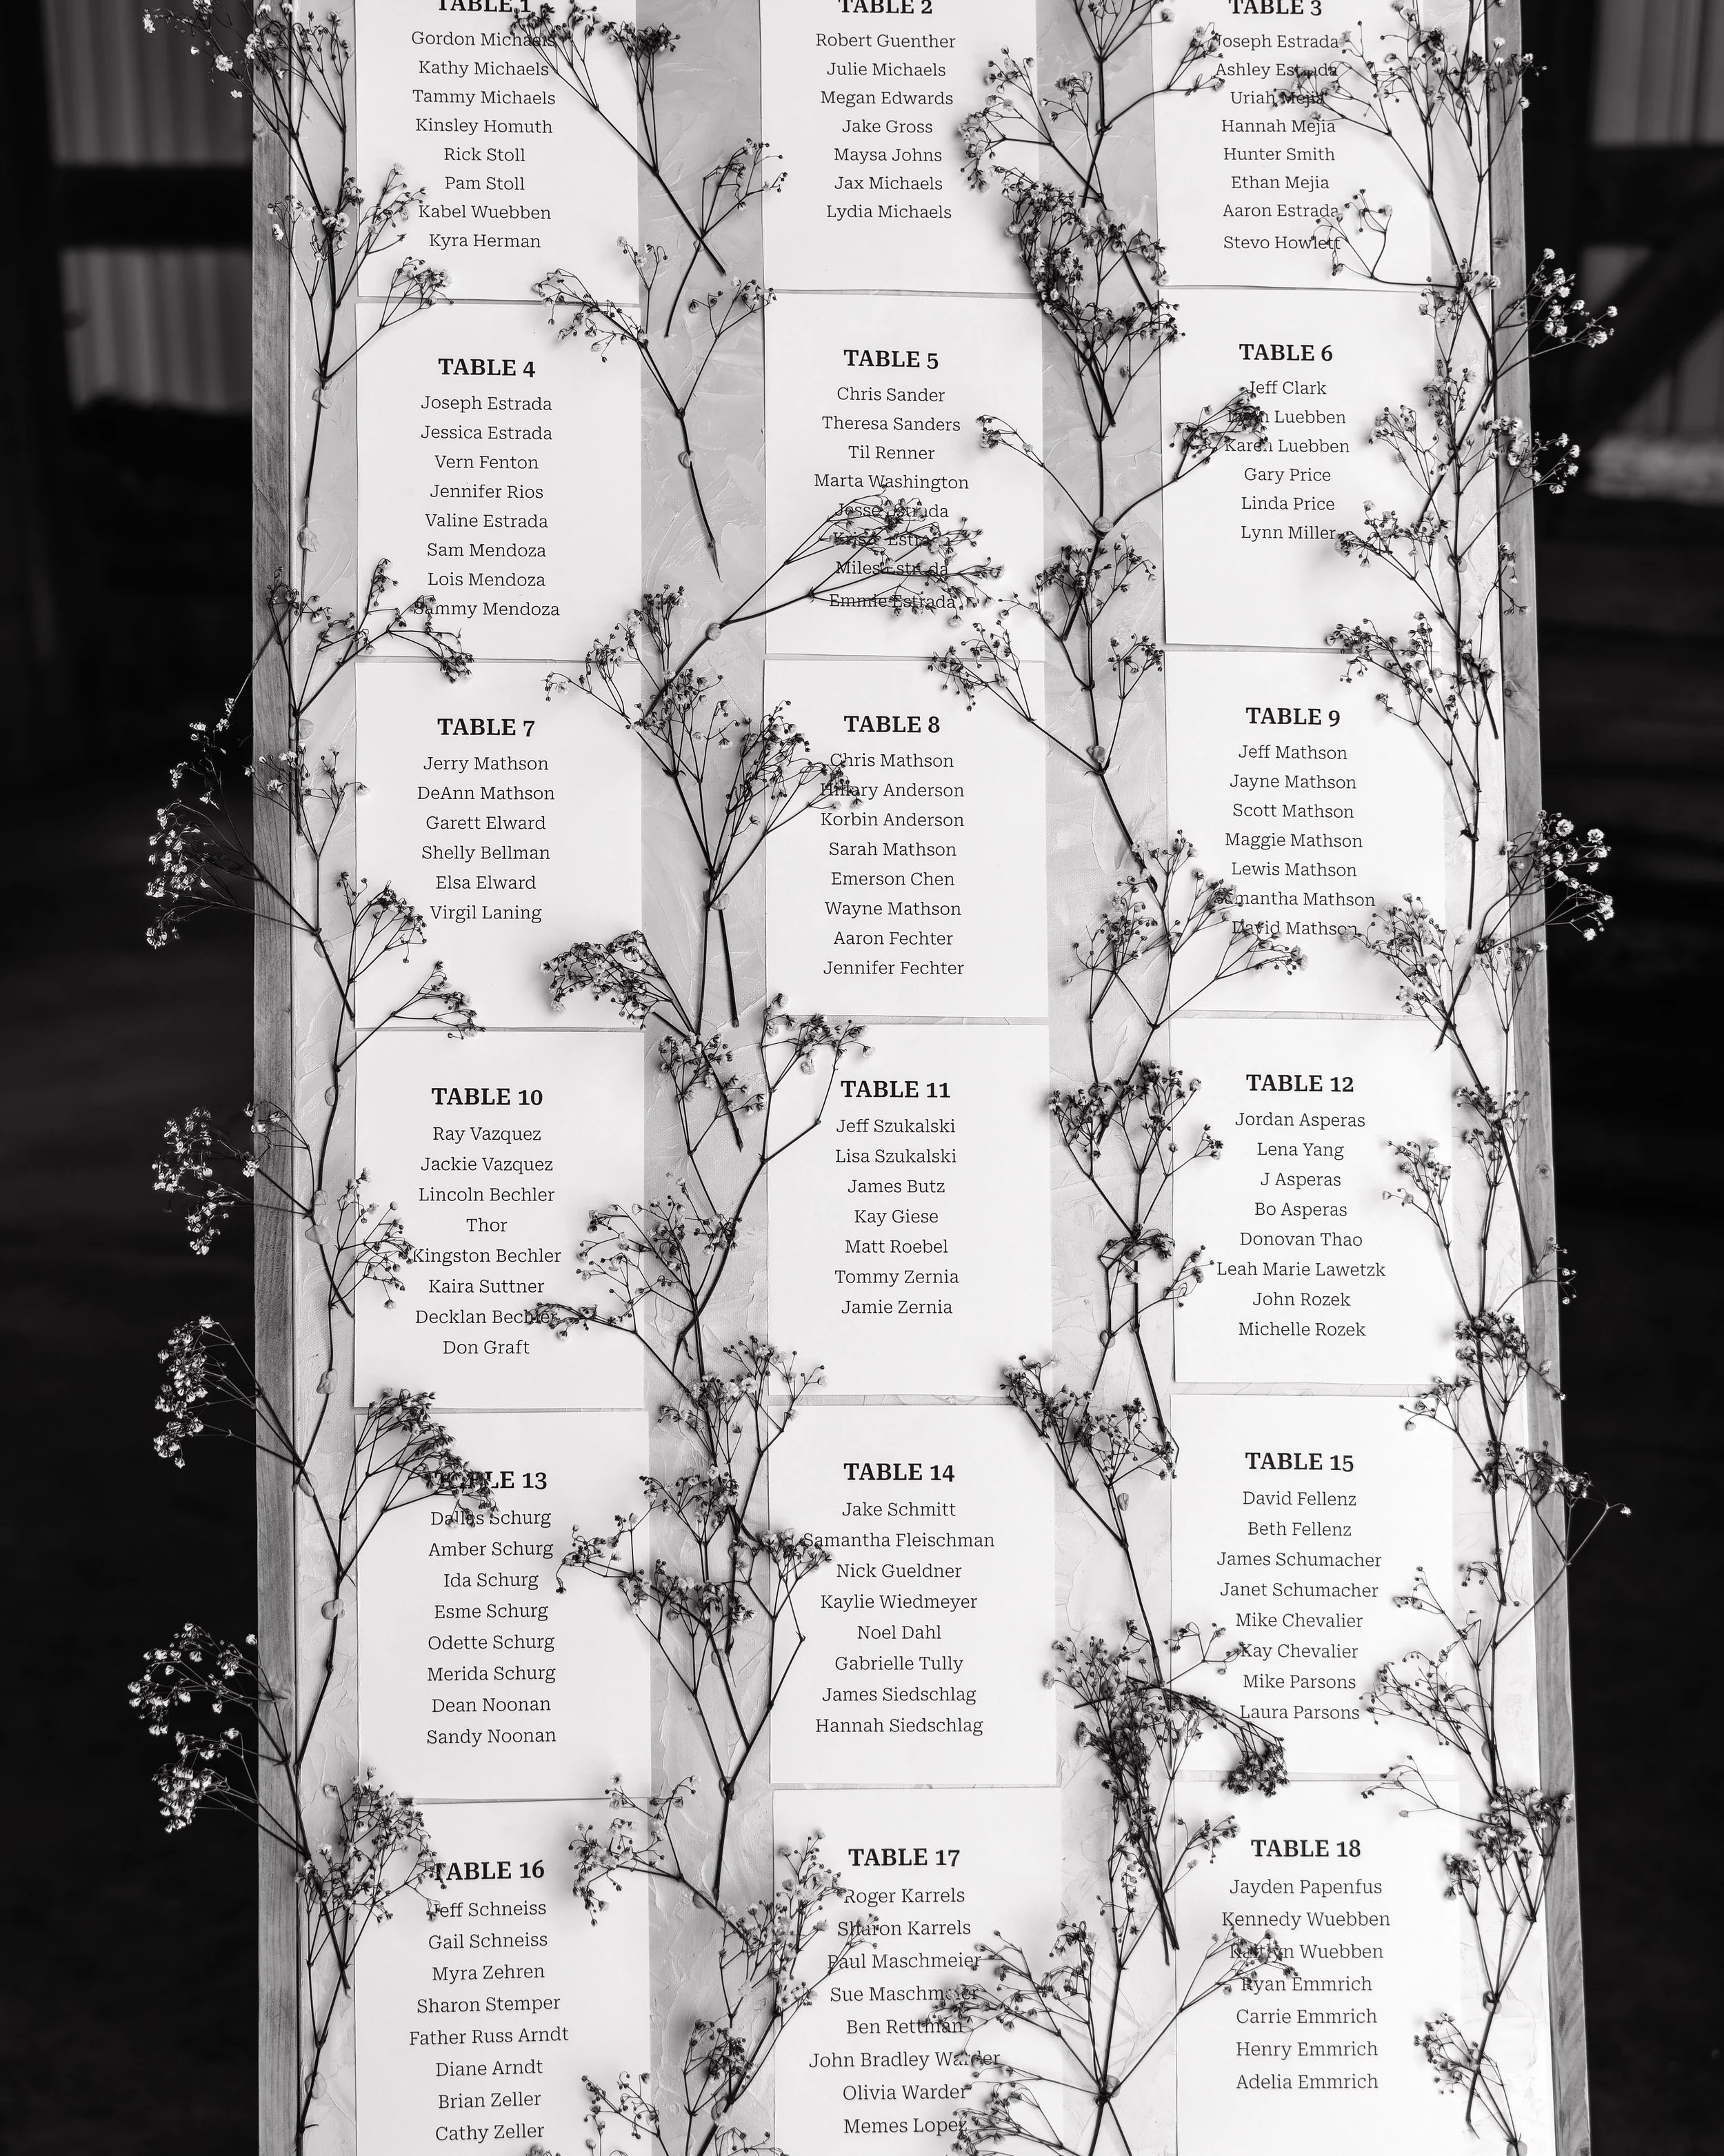 TABLE 1
Gordon Michaels
Kathy Michaels
Tammy Michaels
Kinsley Homuth
Rick Stoll
Pam Stoll
Kabel Wuebben
Kyra Herman
TABLE 2
Robert Guenther
Julie Michaels
Megan Edwards
Jake Gross
Maysa Johns
Jax Michaels
Lydia Michaels
TABLE 3
Joseph Estrada
Ashley Estrada
Uriah Mejia
Hannah Mejia
Hunter Smith
Ethan Mejia
Aaron Estrada
Stevo Howlett
TABLE 4
Joseph Estrada
Jessica Estrada
Vern Fenton
Jennifer Rios
Valine Estrada
Sam Mendoza
Lois Mendoza
Sammy Mendoza
TABLE 5
Chris Sander
Theresa Sanders
Til Renner
Marta Washington
Jesse Estrada
Estrada
Miles Estrada
Emmie Estrada
TABLE 6
Jeff Clark
Luebben
Karen Luebben
Gary Price
Linda Price
Lynn Miller
TABLE 7
Jerry Mathson
DeAnn Mathson
Garett Elward
Shelly Bellman
Elsa Elward
Virgil Laning
TABLE 8
Chris Mathson
Hillary Anderson
Korbin Anderson
Sarah Mathson
Emerson Chen
Wayne Mathson
Aaron Fechter
Jennifer Fechter
TABLE 9
Jeff Mathson
Jayne Mathson
Scott Mathson
Maggie Mathson
Lewis Mathson
Samantha Mathson
David Mathson
TABLE 10
Ray Vazquez
Jackie Vazquez
Lincoln Bechler
Thor
Kingston Bechler
Kaira Suttner
Decklan Bechler
Don Graft
TABLE 11
Jeff Szukalski
Lisa Szukalski
James Butz
Kay Giese
Matt Roebel
Tommy Zernia
Jamie Zernia
TABLE 12
Jordan Asperas
Lena Yang
J Asperas
Bo Asperas
Donovan Thao
Leah Marie Lawetzk
John Rozek
Michelle Rozek
TABLE 13
Dallas Schurg
Amber Schurg
Ida Schurg
Esme Schurg
Odette Schurg
Merida Schurg
Dean Noonan
Sandy Noonan
TABLE 14
Jake Schmitt
Samantha Fleischman
Nick Gueldner
Kaylie Wiedmeyer
Noel Dahl
Gabrielle Tully
James Siedschlag
Hannah Siedschlag
TABLE 15
David Fellenz
Beth Fellenz
James Schumacher
Janet Schumacher
Mike Chevalier
Kay Chevalier
Mike Parsons
Laura Parsons
TABLE 16
Jeff Schneiss
Gail Schneiss
Myra Zehren
Sharon Stemper
Father Russ Arndt
Diane Arndt
Brian Zeller
Cathy Zeller
TABLE 17
Roger Karrels
Sharon Karrels
Paul Maschmeier
Sue Maschmeier
Ben Rettman
John Bradley Warder
Olivia Warder
Memes Lopez
TABLE 18
Jayden Papenfus
Kennedy Wuebben
Kaitlyn Wuebben
Ryan Emmrich
Carrie Emmrich
Henry Emmrich
Adelia Emmrich